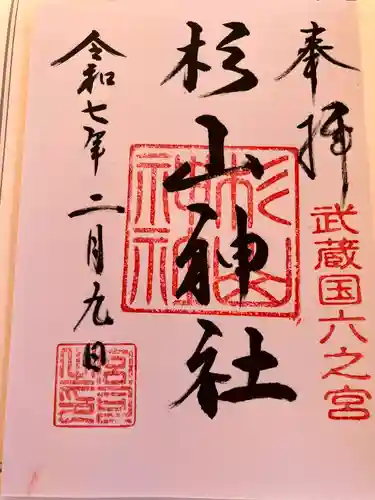 奉拝
武蔵国六之宮
杉山神社
杉山神社
令和七年二月九日